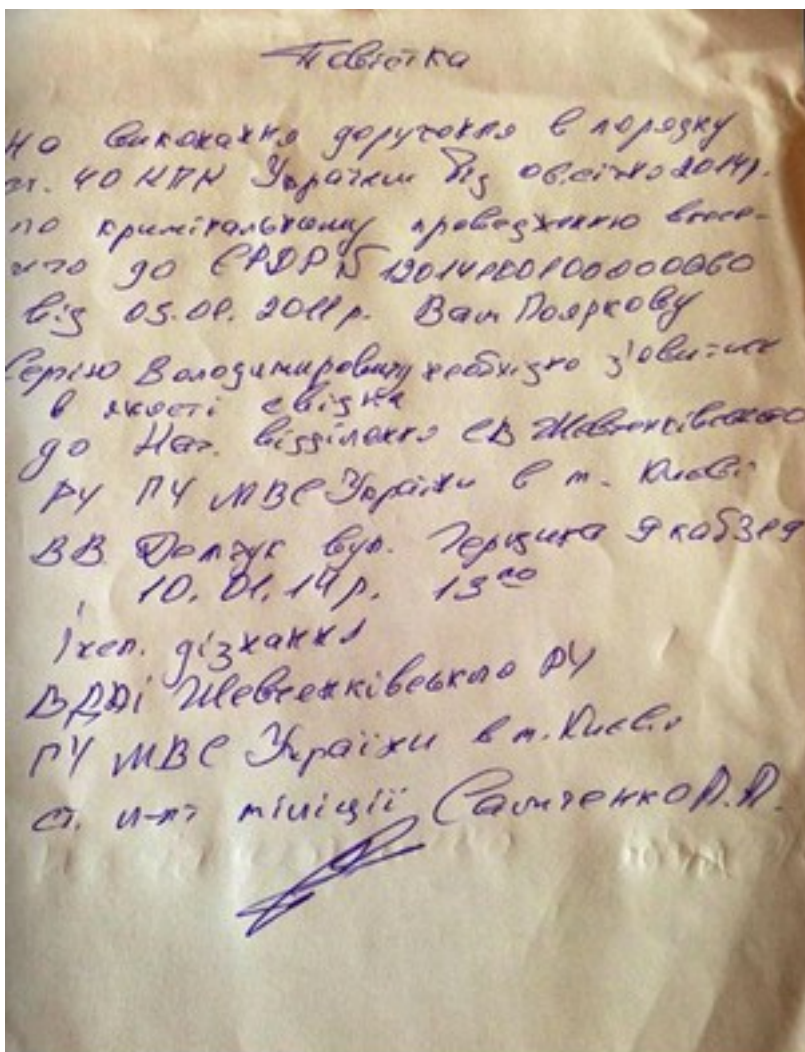 Повістка
на виконання доручення в порядку
ст. 40 КПК України від 06.січня 2014р.
по кримінальному провадженню внесе-
ного до ЄРДР №
від 05.01. Вам Пояркову
Сергію Володимировичу необхідно з'явитись
в якості свідка
до Нач. відділення СВ Шевченківського
РУ ГУ МВС України в м. Києві
ВВ вул. Герцена
10.01.14р. 13⁰⁰
Інсп. дізнання
ВДАІ Шевченківського РУ
ГУ МВС України в м. Києві
ст. л-нт міліції